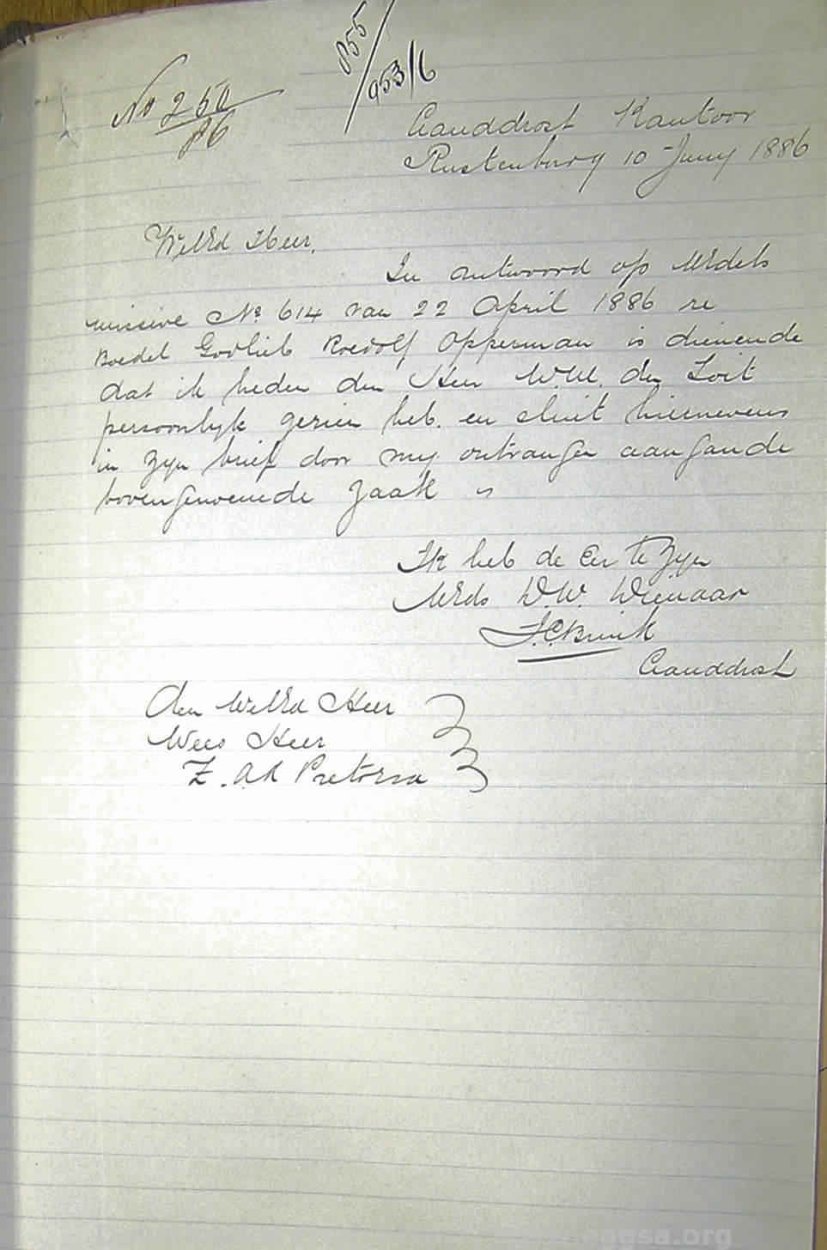 No 250
86
855
953/6
Landdrost Kantoor
Rustenburg 10 Juny 1886
WelEd Heer,
In antwoord op UEdels
missive No 614 van 22 April 1886 re
Boedel Godlieb Roedolf Opperman is dienende
dat ik heden den Heer W.W. du Toit
persoonlyk gezien heb. en sluit hiernevens
in zyn brief door my ontvangen aangande
bovengenoemde zaak
Ik heb de Eer te zyn
UEds D.W. Dienaar
Landdrost
Den WelEd Heer
Wees Heer
Z.A.R Pretoria